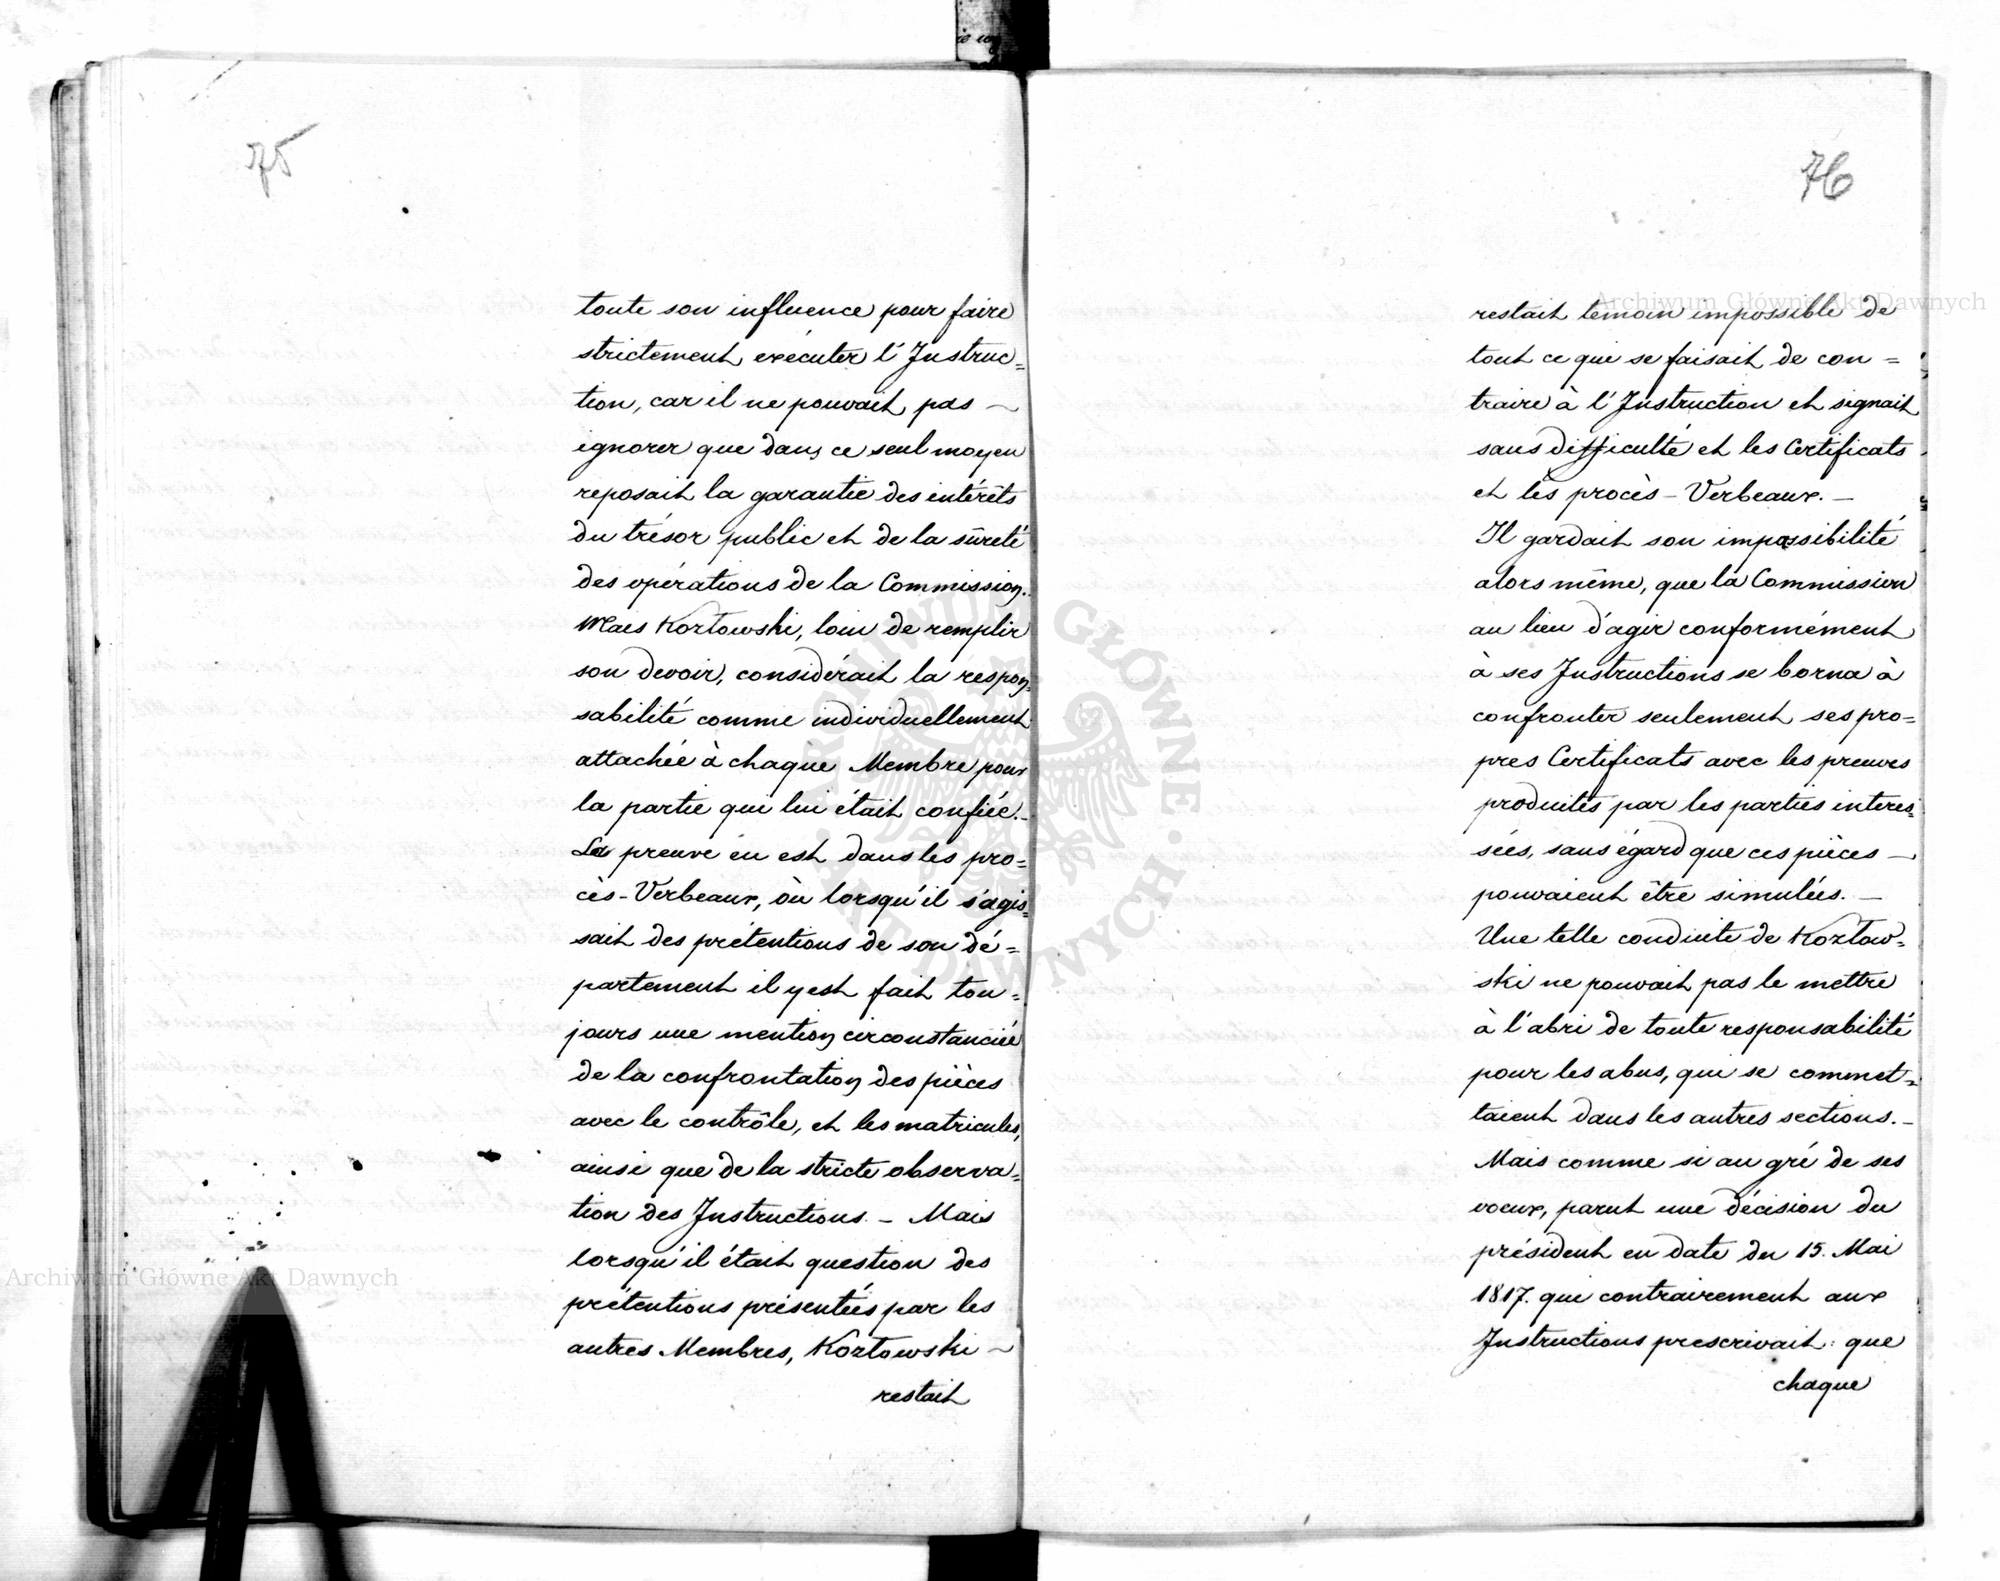 75
toute son influence pour faire
strictement exécuter l'Instruc=
tion, car il ne pouvait pas —
ignorer que dans ce seul moyen
reposait la garantie des intérêts
du trésor public et de la sûreté
des opérations de la Commission.
Mais Kozłowski, loin de remplir
son devoir, considérait la respon=
sabilité comme individuellement
attachée à chaque Membre pour
la partie qui lui était confiée.—
La preuve en est dans les pro=
cès-Verbeaux, où lorsqu'il s'agis=
sait des prétentions de son dé=
partement il y est fait tou=
jours une mention circonstanciée
de la confrontation des pièces
avec le contrôle, et les matricules,
ainsi que de la stricte observa=
tion des Instructions. — Mais
lorsqu'il était question des
prétentions présentées par les
autres Membres, Kozłowski —
restait
76
restait temoin impossible de
tout ce qui se faisait de con=
traire à l'Instruction et signait
sans difficulté et les Certificats
et les procès-Verbeaux.—
Il gardait son impossibilité
alors même, que la Commission
au lieu d'agir conformément
à ses Instructions se borna à
confronter seulement ses pro=
pres Certificats avec les preuves
produites par les parties interes=
sées, sans égard que ces pièces —
pouvaient être simulées.—
Une telle conduite de Kozłow=
ski ne pouvait pas le mettre
à l'abri de toute responsabilité
pour les abus, qui se commet=
taient dans les autres sections.—
Mais comme si au gré de ses
voeux, parut une décision du
président en date du 15. Mai
1817. qui contrairement aux
Instructions prescrivait: que
chaque
Archiwum Główne Akt Dawnych
Archiwum Główne Akt Dawnych
ARCHIWUM GŁÓWNE AKT DAWNYCH